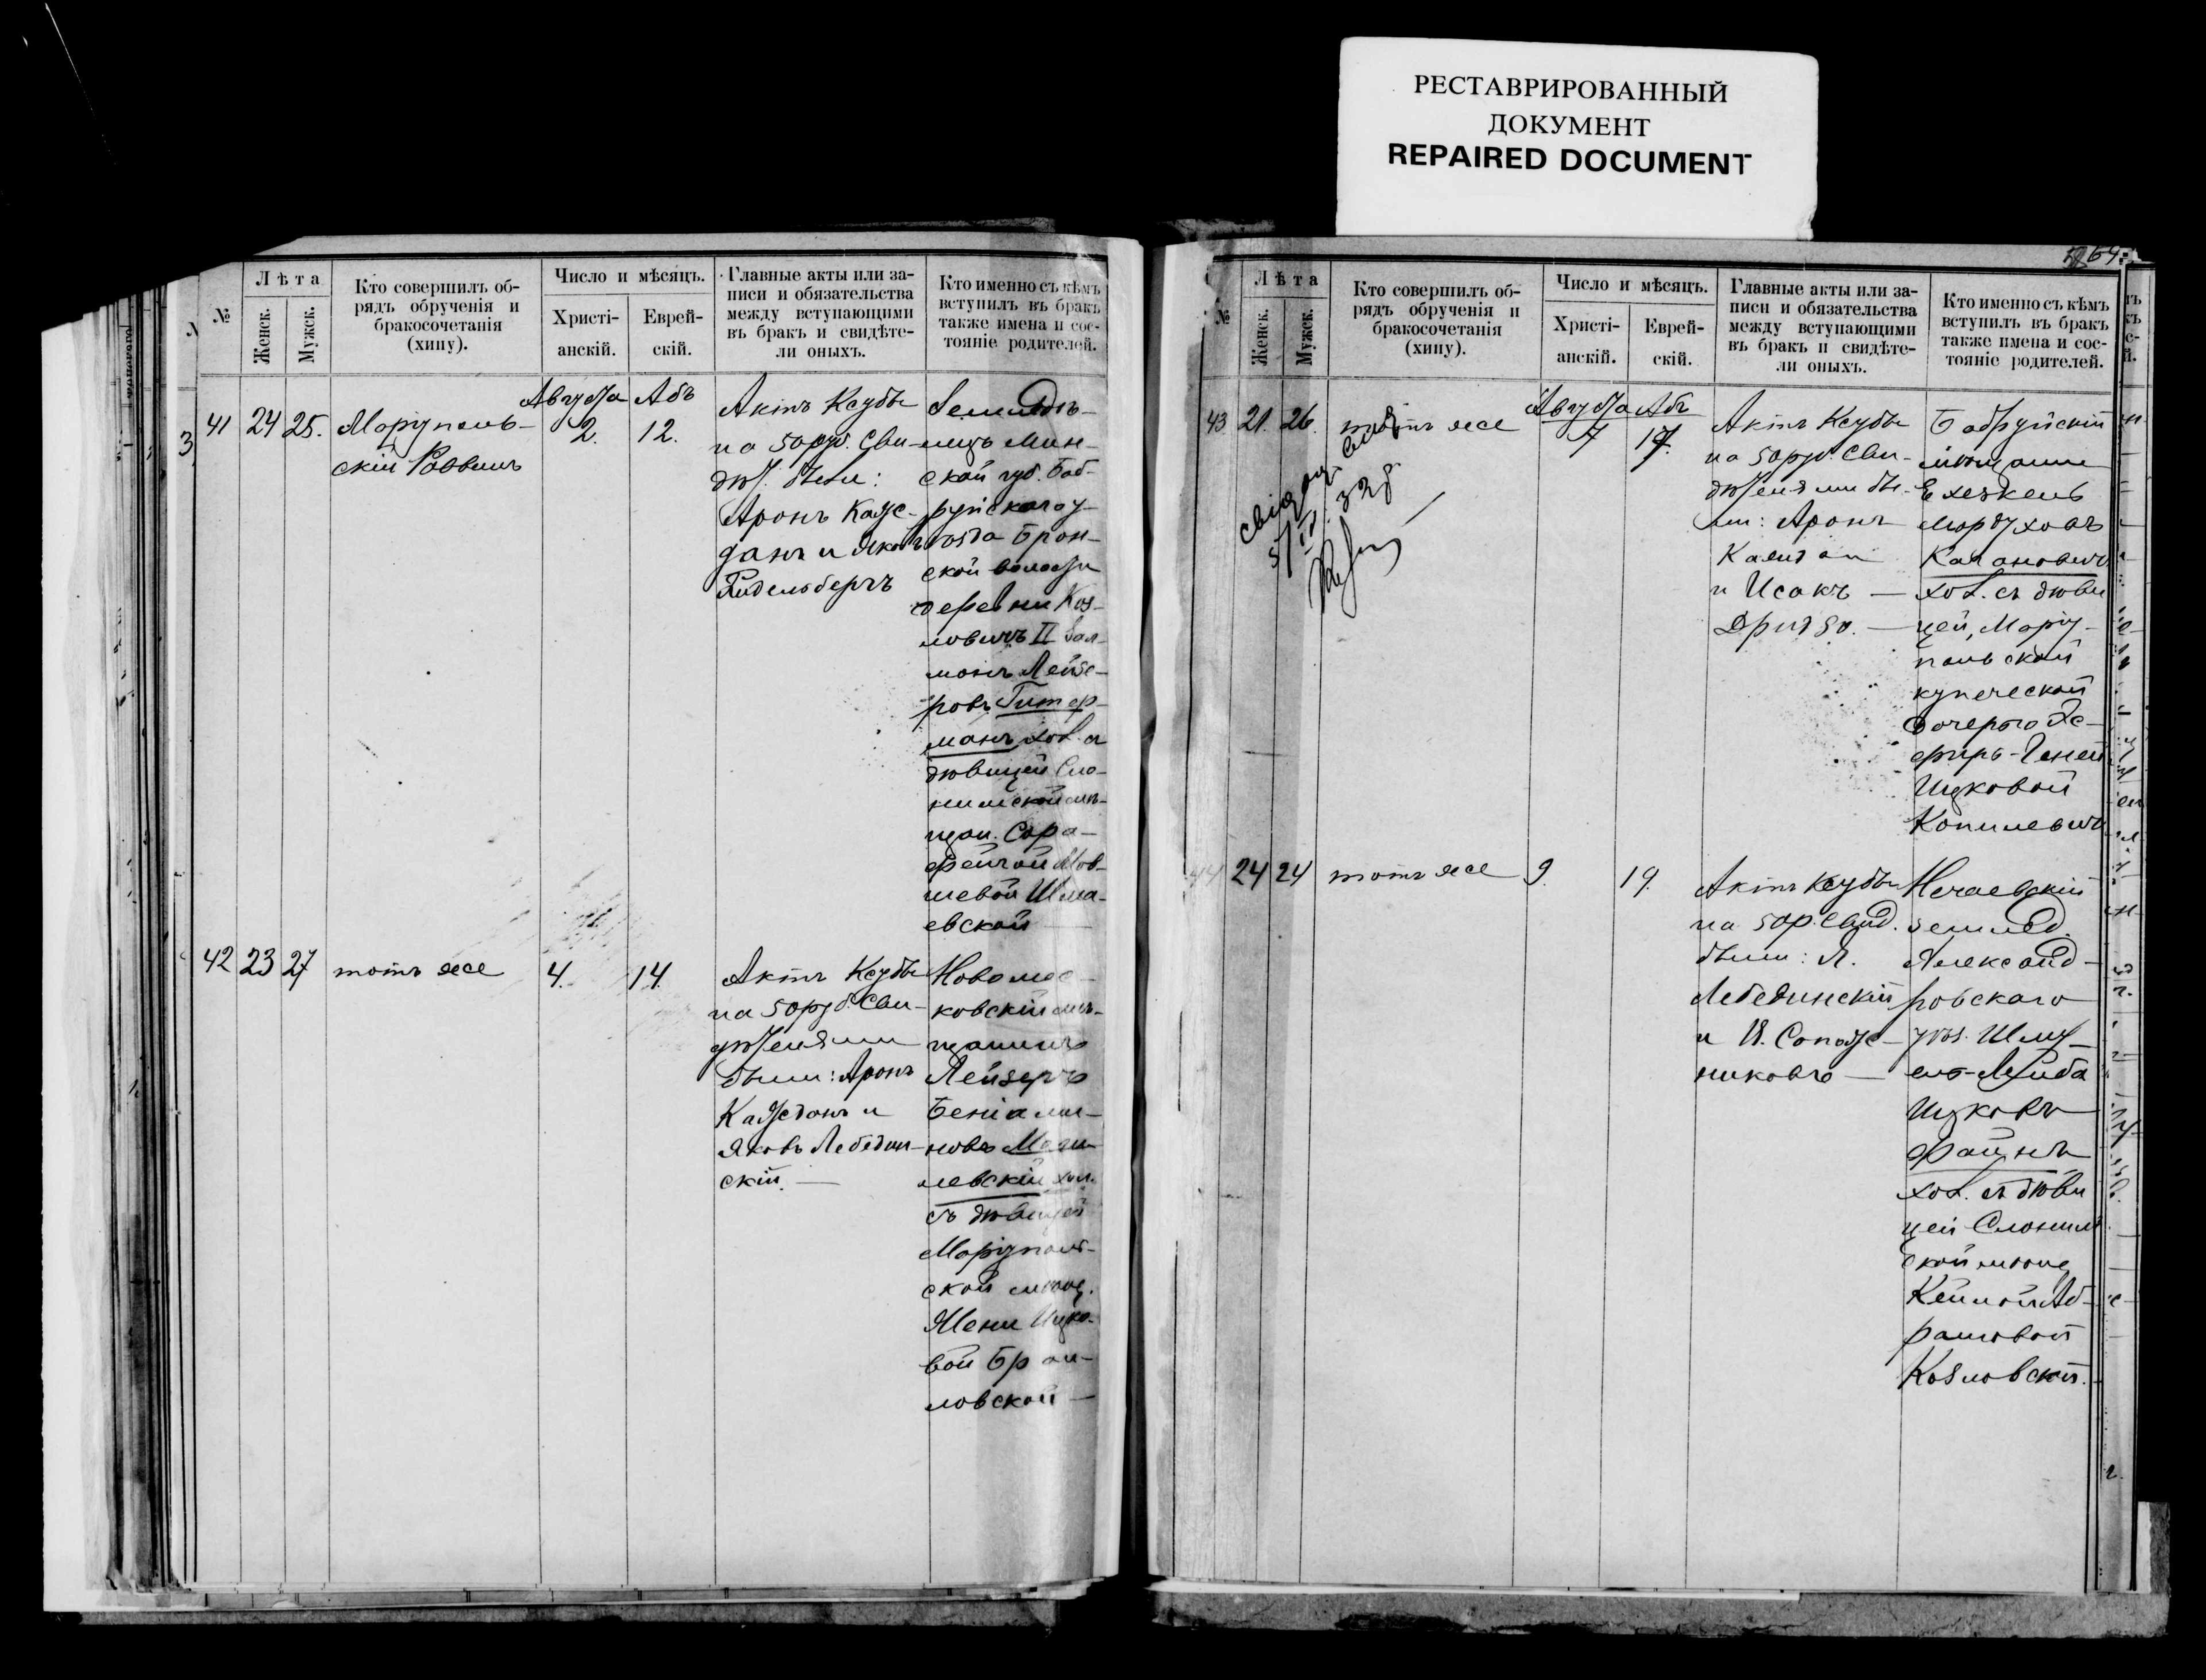 РЕСТАВРИРОВАННЫЙ
ДОКУМЕНТ
REPAIRED DOCUMENT
№
Лѣта
Женск.
Мужск.
Кто совершилъ об-
рядъ обрученія и
бракосочетанія
(хипу).
Число и мѣсяцъ.
Христі-
анскій.
Еврей-
скій.
Главные акты или за-
писи и обязательства
между вступающими
въ бракъ и свидѣте-
ли оныхъ.
Кто именно съ кѣмъ
вступилъ въ бракъ
также имена и сос-
тояніе родителей.
41
24
25.
Маріуполь-
скій Раввинъ
Августа
2.
Абъ
12.
Актъ Ксубы
на 50 руб. Сви-
дѣт. были:
Аронъ Каж-
данъ и Яковъ
Гидельбергъ
Земледѣ-
лецъ Мин-
ской губ. Боб-
руйскаго у-
ѣзда Брон-
ской волости
деревни Коз-
ловичъ II Зал-
монъ Лейзе-
ровъ Гитер-
манъ хол. съ
дѣвицей Сло-
нимской мѣ-
щан. Сора-
Фейгой Мов-
шевой Шма-
евской
42
23
27
тотъ же
4.
14.
Актъ Ксубы
на 50 руб. Сви-
дѣтелями
были: Аронъ
Кажданъ и
Яковъ Лебедин-
скій.
Новомос-
ковскій мѣ-
щанинъ
Лейзеръ
Беніами-
новъ Моги-
левскій хол.
съ дѣвицей
Маріуполь-
ской мѣщ.
Мени Ицко-
вой Бра-
ловской
№
Лѣта
Женск.
Мужск.
Кто совершилъ об-
рядъ обрученія и
бракосочетанія
(хипу).
Число и мѣсяцъ.
Христі-
анскій.
Еврей-
скій.
Главные акты или за-
писи и обязательства
между вступающими
въ бракъ и свидѣте-
ли оныхъ.
Кто именно съ кѣмъ
вступилъ въ бракъ
также имена и сос-
тояніе родителей.
43
21.
26.
тотъ же
328
Августа
7
Абъ
17.
Актъ Ксубы
на 50 руб. Сви-
дѣтелями бы-
ли: Аронъ
Каждан
и Исакъ
Дризо.
Бобруйскій
мѣщанин
Ехезкель
Мордуховъ
Каганович
хол. съ дѣви
цей, Маріу-
польской
купеческой
дочерью Эс-
фирь-Геней
Ицковой
Копилевич
44
24
24
тотъ же
9.
19.
Актъ Ксубы
на 50 р. Свид.
были: Я.
Лебединскій
и И. Сапож-
никовъ
Нечаевскій
землед.
Александ-
ровскаго
уѣз. Шму-
ель-Лейба
Ицковъ
Файнъ
хол. съ дѣви
цей Слоним
ской мѣщ.
Кейлой Аб-
рамовой
Козловской.